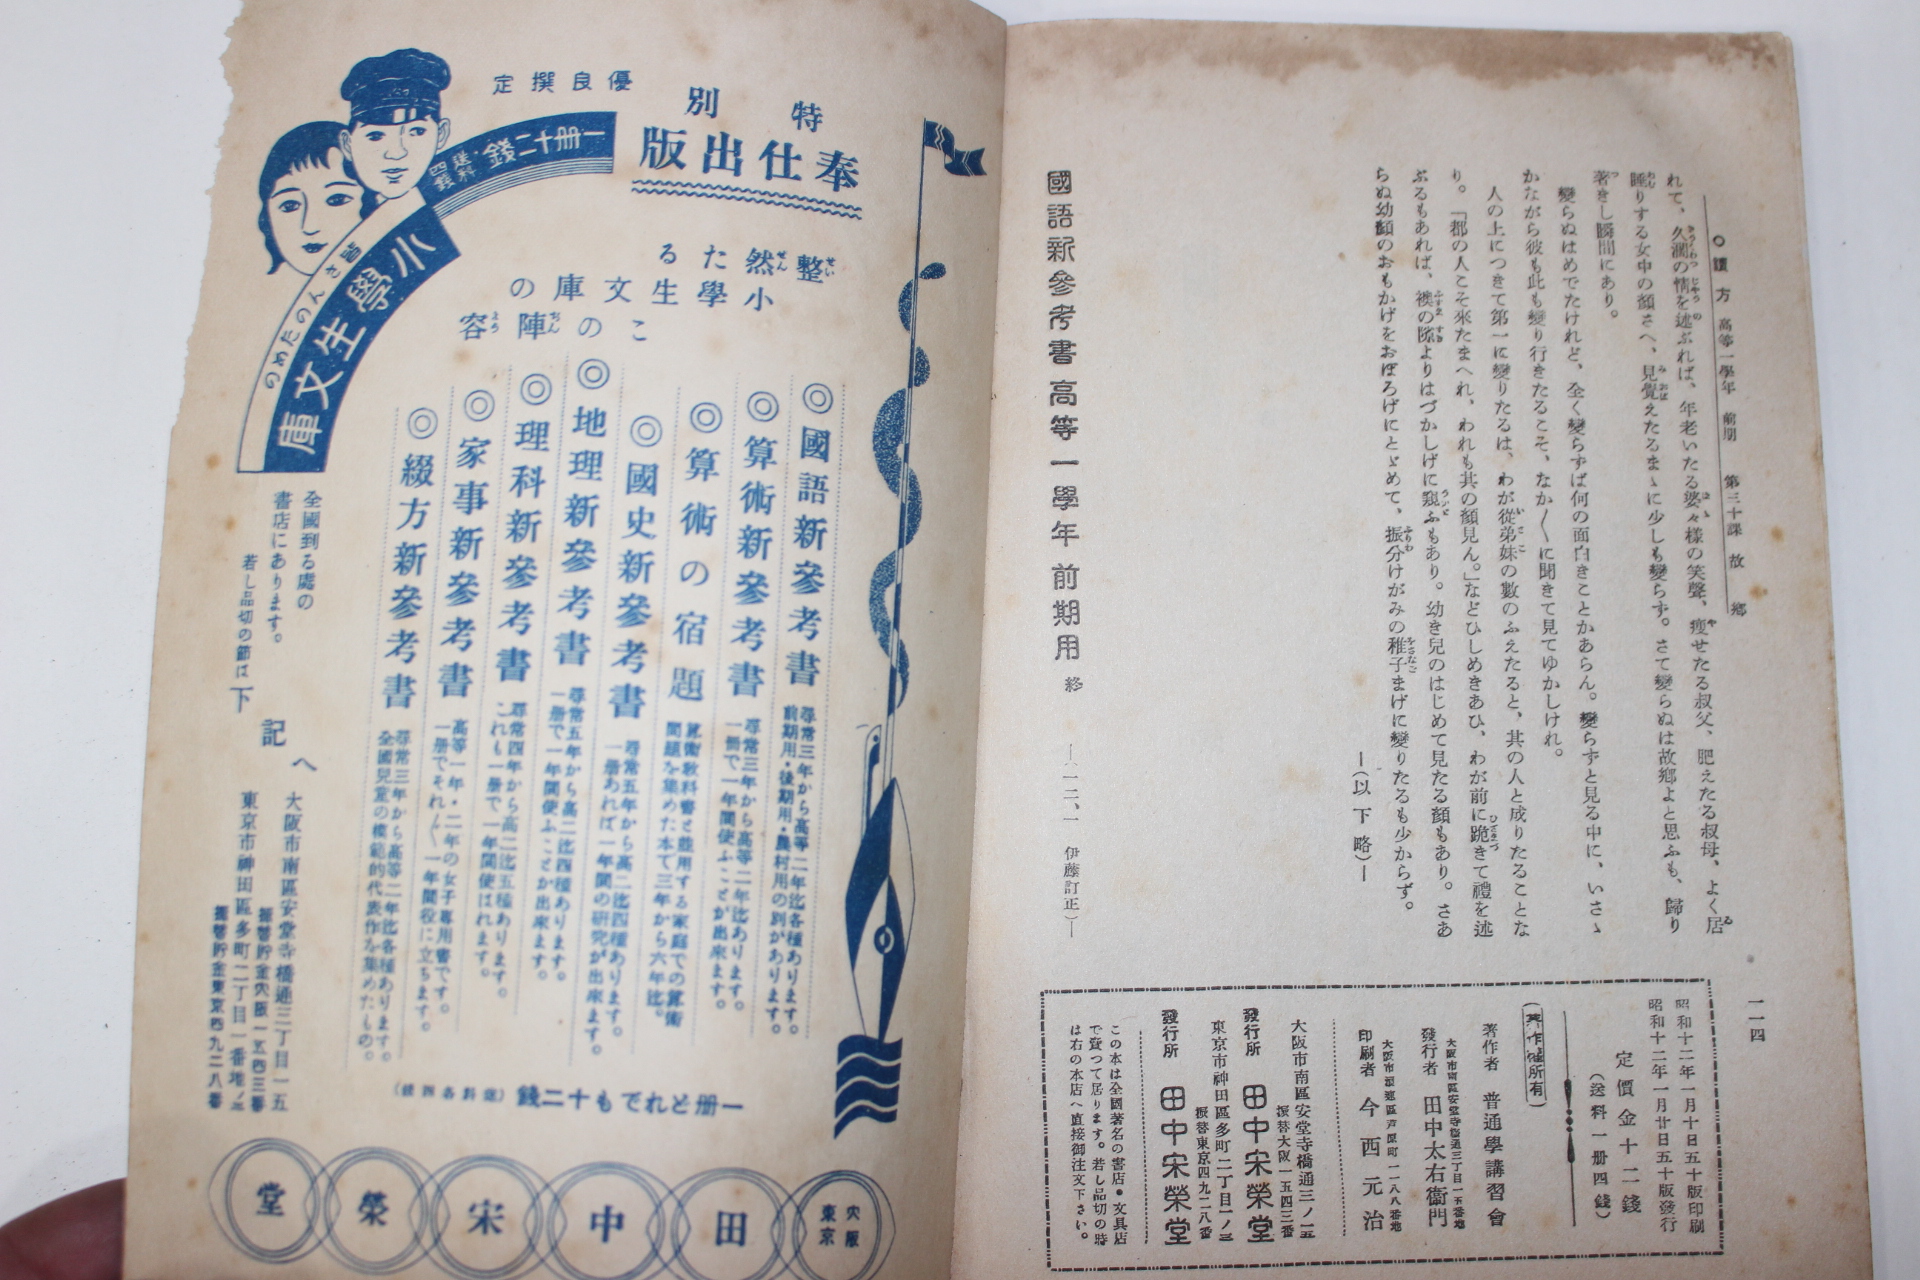 ○讀方 高等一學年 前期 第三十課 故鄕
一一四
れて、久濶の情を述ぶれば、年老いたる婆々樣の笑聲、瘦せたる叔父、肥えたる叔母、よく居
睡りする女中の顏さへ、見覺えたるまゝに少しも變らず。さて變らぬは故鄕よと思ふも、歸り
著きし瞬間にあり。
變らぬはめでたけれど、全く變らずば何の面白きことかあらん。變らずと見る中に、いさゝ
かながら彼も此も變り行きたるこそ、なか〳〵に聞きて見てゆかしけれ。
人の上につきて第一に變りたるは、わが從弟妹の數のふえたると、其の人と成りたることな
り。「都の人こそ來たまへれ、われも其の顏見ん。」などひしめきあひ、わが前に跪きて禮を述
ぶるもあれば、襖の隙よりはづかしげに窺ふもあり。幼き兒のはじめて見たる顏もあり。さあ
らぬ幼顏のおもかげをおぼろげにとゞめて、振分けがみの稚子まげに變りたるも少からず。
―(以下略)―
國語新參考書高等一學年前期用 終
―一二、一 伊藤訂正―
昭和十二年一月十日五十版印刷
昭和十二年一月廿日五十版發行
定價金十二錢
(送料一册四錢)
(著作權所有)
著作者 普通學講習會
大阪市南區安堂寺橋通三丁目一五番地
發行者 田中太右衞門
印刷者 今西元治
大阪市南區安堂寺橋通三ノ一五
振替大阪一五四三番
發行所 田中宋榮堂
東京市神田區多町二丁目一ノ三
振替東京四九二八番
發行所 田中宋榮堂
この本は全國著名の書店・文具店
で賣つて居ります。若し品切の時
は右の本店へ直接御注文下さい。
優良撰定
特別
奉仕出版
一册十二錢・送料四錢
皆さんのための
小學生文庫
整然たる
小學生文庫の
この陣容
◎國語新參考書 尋常三年から高等二年迄各種あります。
前期用・後期用・農村用の別があります。
◎算術新參考書 尋常三年から高等二年迄あります。
一册で一年間使ふことが出來ます。
◎算術の宿題 算術敎科書と竝用する家庭での算術
問題を集めた本で三年から六年迄。
◎國史新參考書 尋常五年から高二迄四種あります。
一册あれば一年間の研究が出來ます。
◎地理新參考書 尋常五年から高二迄四種あります。
一册で一年間使ふことが出來ます。
◎理科新參考書 尋常四年から高二迄五種あります。
これも一册で一年間使はれます。
◎家事新參考書 高等一年・二年の女子專用書です。
一册でそれ〴〵一年間役に立ちます。
◎綴方新參考書 尋常三年から高等二年迄各種あります。
全國兒童の模範的代表作を集めたもの。
一册どれでも十二錢(送料各四錢)
全國到る處の
書店にあります。
若し品切の節は下記へ
大阪市南區安堂寺橋通三丁目一五
振替貯金大阪一五四三番
東京市神田區多町二丁目一番地ノ三
振替貯金東京四九二八番
大阪
東京
田中宋榮堂